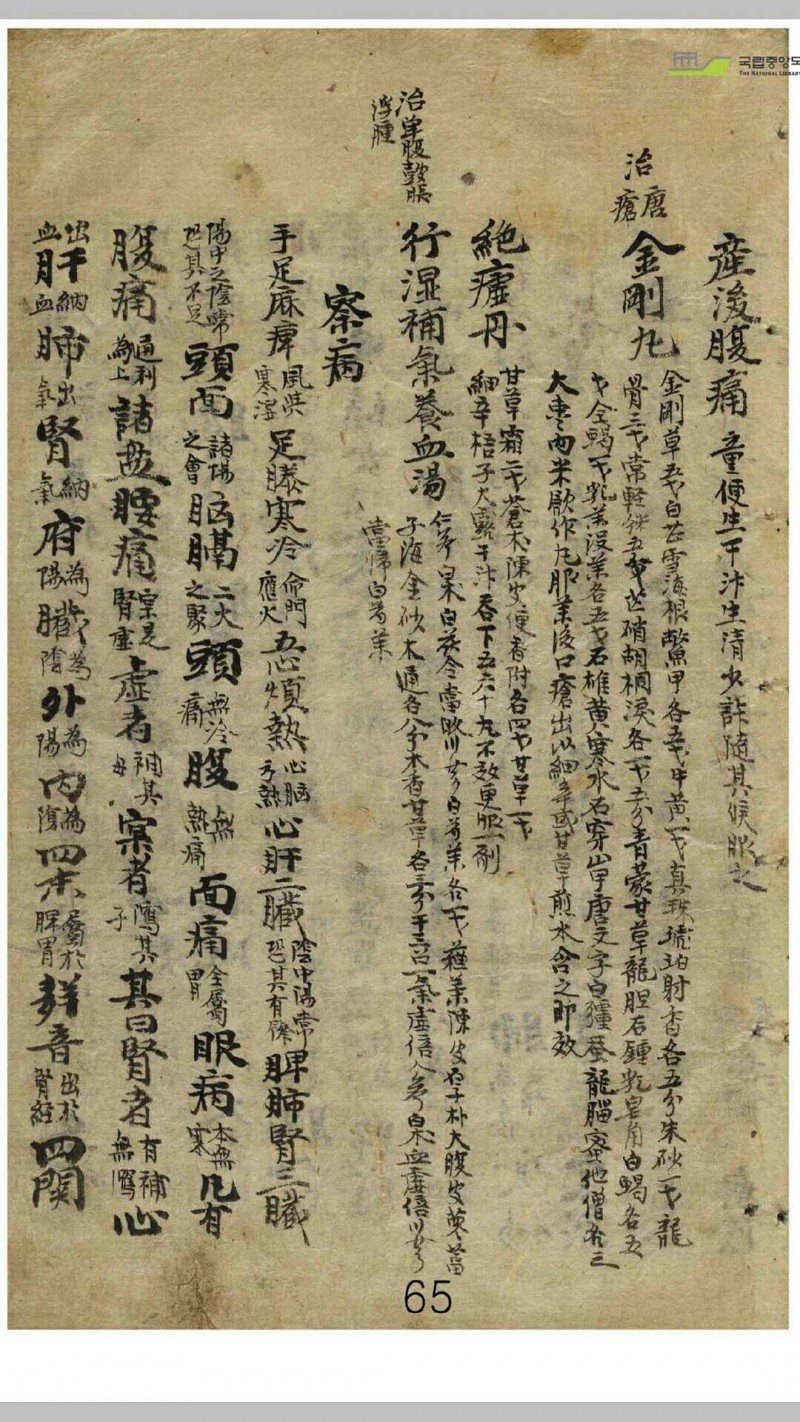 국립중앙도
THE NATIONAL LIBRARY
産後腹痛 童便生干汁生清少許随其候服之
治唐瘡
金剛丸 金剛草五戈白芷雪海根鱉甲各五戈牛黄一戈真珠琥珀射香各五分朱砂一戈龍
骨三戈常軽粉五戈芒硝胡桐淚各一戈五分青蒙甘草龍胆石鍾乳皂角白蝎各五
戈全蝎一戈乳業没業各五戈石雄黄寒水石穿山甲唐文字白殭蚕龍腦蜜他僧各三
大棗肉米飲作丸服業後口瘡出以細辛或甘草煎水含之即效
絶瘧丹 甘草霜二戈蒼朮陳皮便香附各四戈甘草一戈
細辛梧子大露干汁吞下五六十丸不效更服一剤
治單腹皷脹
浮腫
行湿補氣養血湯 仁參 白茯令當歸川芎白芍業各一戈蘓業陳皮厚朴大腹皮萊菖
子海金砂木通各八分木香甘草各三分干三召二氣虚倍人參 血虚倍川芎
當帰白芍業
察病
手足麻痺 風洪寒湿 足膝寒冷 命門應火 五心煩熱 心脳 熱 心肝二臓 陰中陽常恐其有餘 脾肺腎三臓
陽中之陰常恐其不足 頭面 諸陽之會 脳膈 二火之聚 頭 無冷痛 腹 無熱痛 面痛 全屬胃 眼病 本無寒 凡有
腹痛 通利為上 諸盗腰痛 実是腎虚 虚者 補其母 实者 瀉其子 其曰腎者 有補無瀉 心
出血 肝 納血 肺 出氣 腎 納氣 府 為陽 臓 為陰 外 為陽 内 為陰 四末 屬於脾胃 群音 出於腎経 四関
65